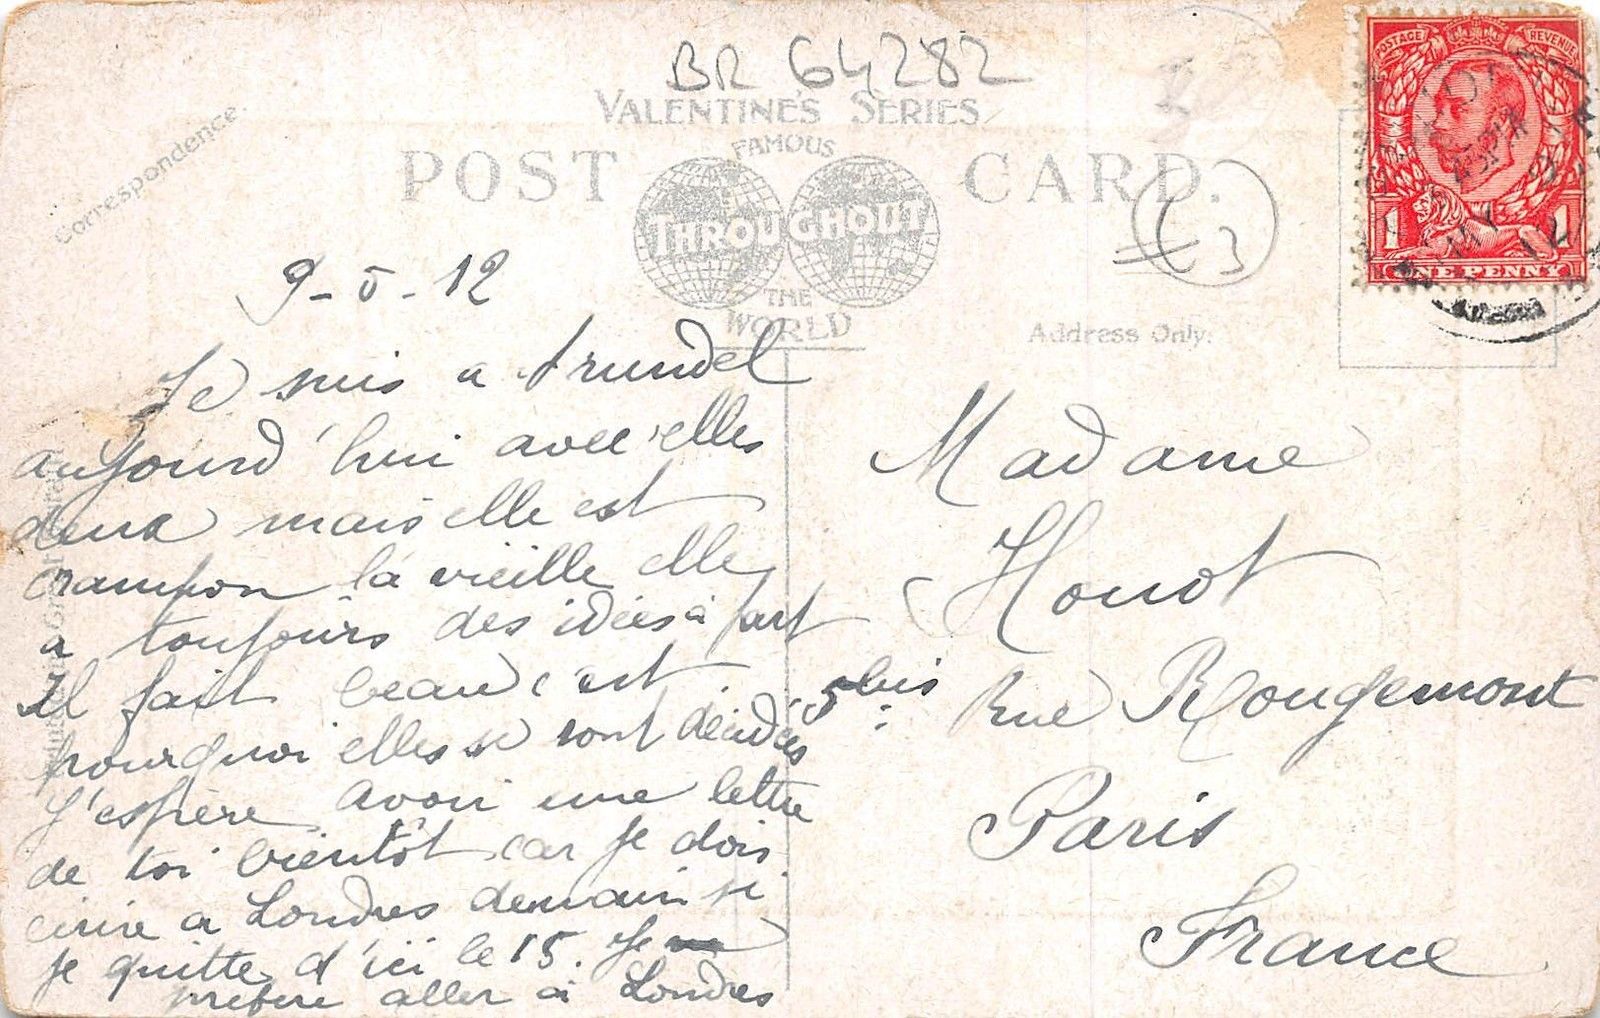 BR 64282
VALENTINE'S SERIES
FAMOUS
POST CARD.
THROUGHOUT
THE
WORLD
Correspondence.
Address Only.
£3
POSTAGE REVENUE
1 1
ONE PENNY
MY 9
12
9-5-12
Je suis a Arundel
aujourd'hui avec elles
deux mais elle est
crampon la vieille elle
a toujours des idées à part
Il fait beau c'est
pourquoi elles se sont décidées
J'espère avoir une lettre
de toi bientôt car je dois
écrire a Londres demain si
je quitte d'ici le 15. Je
préfère aller à Londres
Madame
Houot
5 bis Rue Rougemont
Paris
France